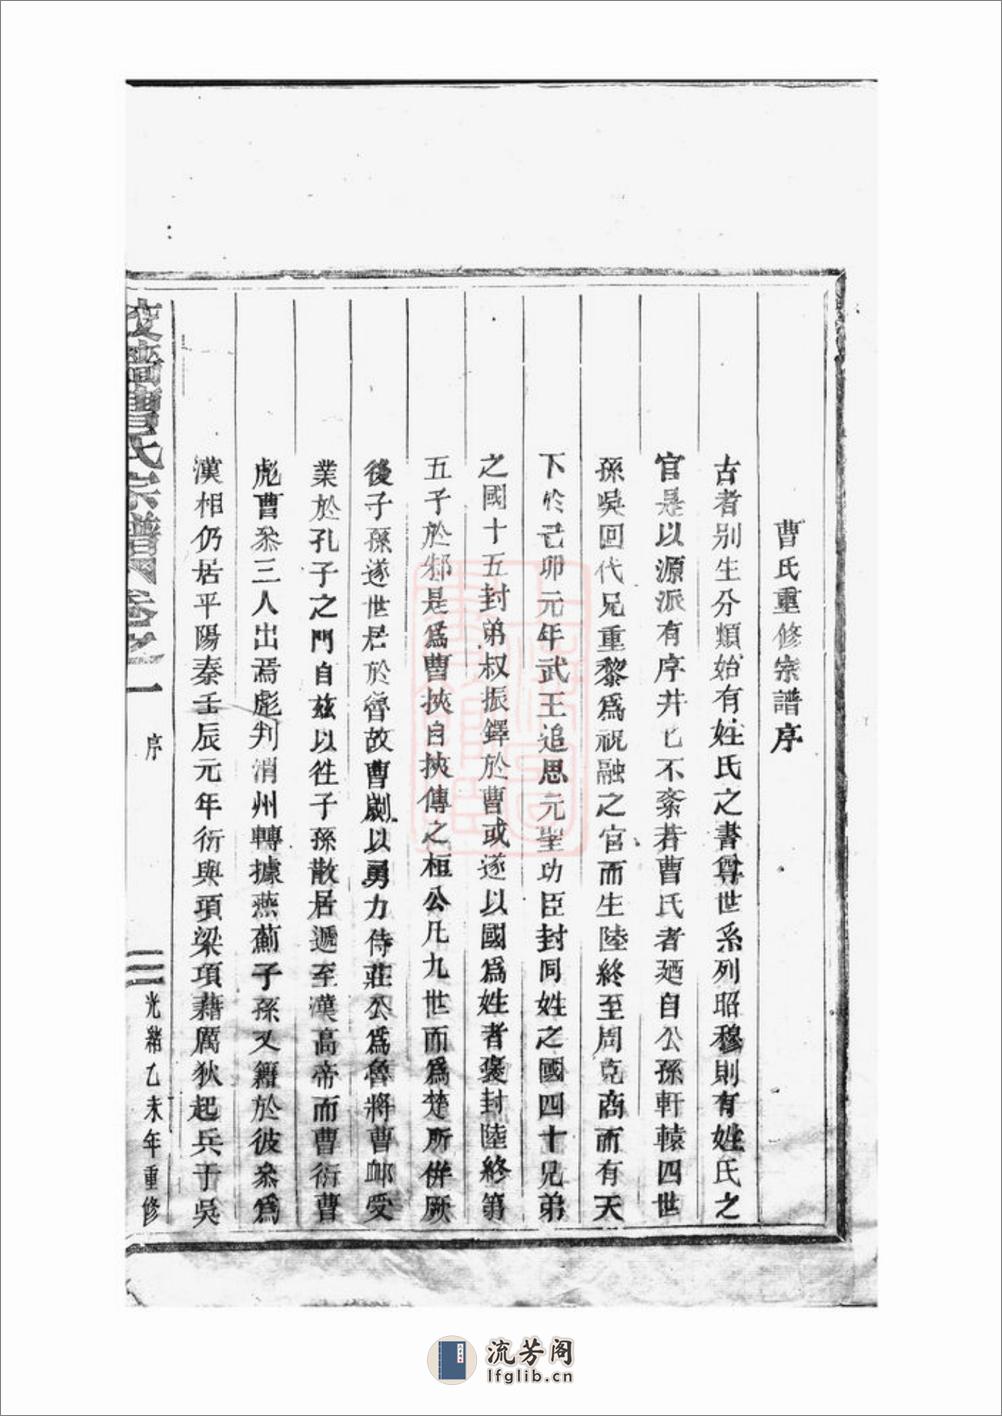 曹氏重修宗譜序
古者别生分類始有姓氏之書尊世系列昭穆則有姓氏之
官是以源派有序井已不紊若曹氏者廼自公孫軒轅四世
孫吳回代兄重黎爲祝融之官而生陸終至周克商而有天
下於己卯元年武王追思元聖功臣封同姓之國四十兄弟
之國十五封弟叔振鐸於曹或遂以國爲姓者褒封陸終第
五子於邾是爲曹挾自挾傳之桓公凡九世而爲楚所併厥
後子孫遂世居於魯故曹劌以勇力侍莊公爲魯將曹卹受
業於孔子之門自兹以徃子孫散居遞至漢高帝而曹衍曹
彪曹叅三人出焉彪判消州轉據燕薊子孫又籍於彼叅爲
漢相仍居平陽秦壬辰元年衍與項梁項藉厲狄起兵于吳
曹氏宗譜 卷之一
序
二
光緒乙未年重修
流芳阁
lfglib.cn